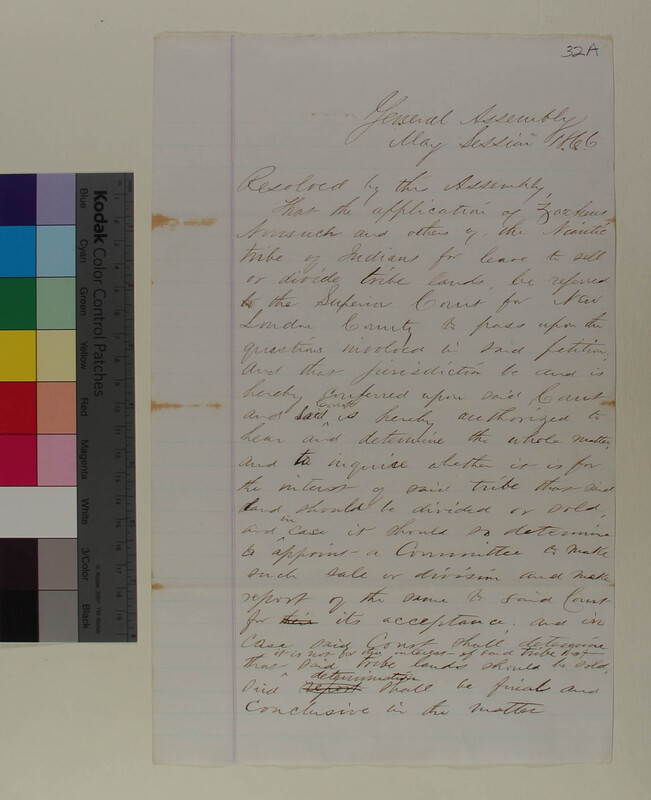 32A
General Assembly
May Session 1866
Resolved by this Assembly,
That the application of Zacheus
Nonsuch and others of the Niantic
tribe of Indians for leave to sell
or divide tribe lands, be referred
to the Superior Court for New
London County to pass upon the
questions involved in said petition,
and that jurisdiction be and is
hereby conferred upon said Court
and said Court is hereby authorized to
hear and determine the whole matter,
and to inquire whether it is for
the interest of said tribe that said
land should be divided or sold,
and in case it should so determine
to appoint a Committee to make
such sale or division and make
report of the same to said Court
for their its acceptance, and in
case said Court shall determine
it is not for the interest of said tribe
that said tribe lands should be sold,
said report determination shall be final and
conclusive in the matter
Kodak Color Control Patches
Blue
Cyan
Green
Yellow
Red
Magenta
White
3/Color
Black